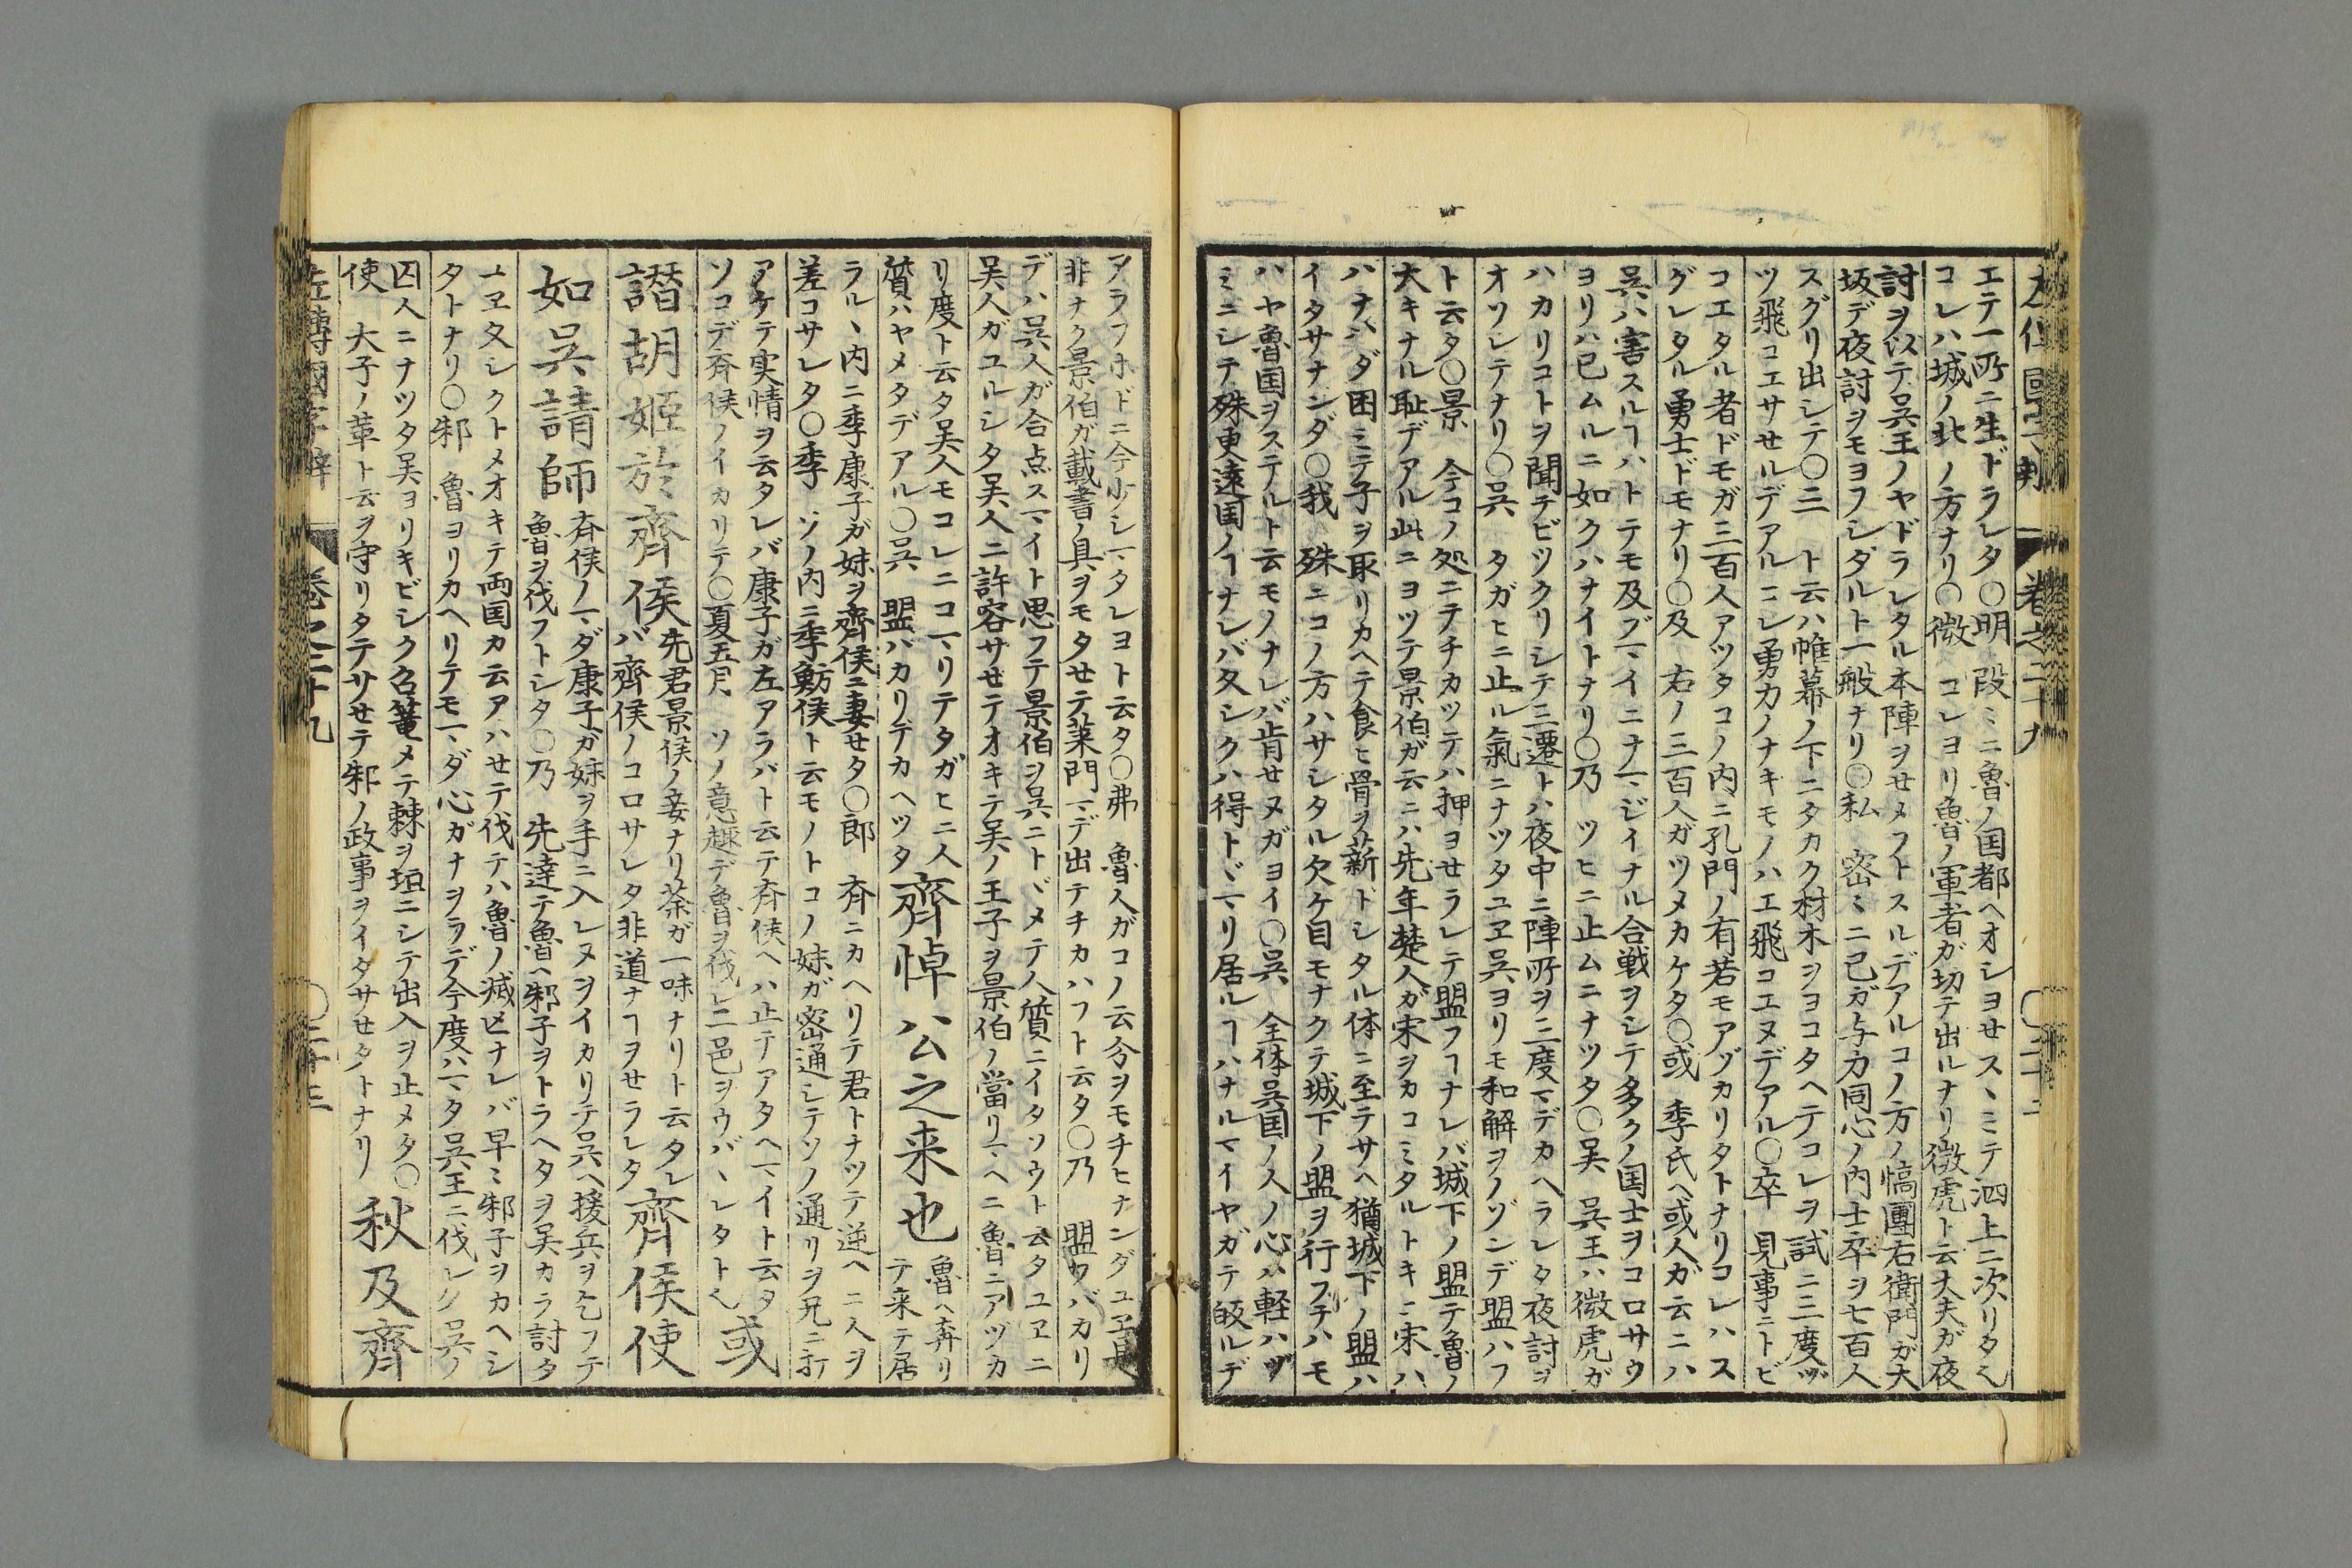 エテ一所ニ生ドラレタ〇明　段ミニ魯ノ国都ヘオシヨセスヽミテ泗上ニ次リタ乀
コレハ城ノ北ノ方ナリ〇微　コレヨリ魯ノ軍者ガ切テ出ルナリ微虎ト云大夫ガ夜
討ヲ以テ呉王ノヤドラレタル本陣ヲせメフトスルデアルコノ方ノ塙團右衛門ガ大
坂デ夜討ヲモヨフシタルト一般ナリ〇私　密ミニ己ガ与力同心ノ内士卒ヲ七百人
スグリ出シテ〇三　ト云ハ帷幕ノ下ニタカク材木ヲヨコタヘテコレヲ試ニ三度ヅ
ツ飛コエサせルデアルコレ勇力ノナキモノハエ飛コエヌデアル〇卒　見事ニトビ
コエタル者ドモガ三百人アツタコノ内ニ孔門ノ有若モアヅカリタトナリコレハス
グレタル勇士ドモナリ〇及　右ノ三百人ガツメカケタ〇或　季氏ヘ或人ガ云ニハ
呉ハ害スルヿハトテモ及ブマイニナマジイナル合戦ヲシテ多クノ国士ヲコロサウ
ヨリハ已ムルニ如クハナイトナリ〇乃　ツヒニ止ムニナツタ〇呉　呉王ハ微虎ガ
ハカリコトヲ聞テビツクリシテ三遷トハ夜中ニ陣所ヲ三度マデカヘラレタ夜討ヲ
オソレテナリ〇呉　タガヒニ止ル氣ニナツタユヱ呉ヨリモ和解ヲノゾンデ盟ハフ
ト云タ〇景　今コノ処ニテチカツテハ押ヨせラレテ盟フヿナレバ城下ノ盟テ魯ノ
大キナル恥デアル此ニヨツテ景伯ガ云ニハ先年楚人ガ宋ヲカコミタルトキニ宋ハ
ハナハダ困ミテ子ヲ取リカヘテ食ヒ骨ヲ薪トシタル体ニ至テサヘ猶城下ノ盟ハ
イタサナンダ〇我　殊ニコノ方ハサシタル欠ケ目モナクテ城下ノ盟ヲ行フテハモ
ハヤ魯国ヲステルト云モノナレバ肯せヌガヨイ〇呉　全体呉国ノ人ノ心ハ軽ハヅ
ミニシテ殊更遠国ノヿナレバ久シクハ得トヾマリ居ルヿハナルマイヤガテ皈ルデ
巻之二十九
アラフホドニ今少シマタレヨト云タ〇弗　魯人ガコノ云分ヲモチヒナンダユヱ是
非ナク景伯ガ載書ノ具ヲモタせテ莱門マデ出テチカハフト云タ〇乃　盟ワバカリ
デハ呉人ガ合点スマイト思フテ景伯ヲ呉ニトヾメテ人質ニイタソウト云タユヱニ
呉人ガユルシタ呉人ニ許容サせテオキテ呉ノ王子ヲ景伯ノ當リマヘニ魯ニアヅカ
リ度ト云タ呉人モコレニコマリテタガヒニ人
質ハヤメタデアル〇呉　盟バカリデカヘツタ
齊悼公之来也
魯ヘ奔リ
テ来テ居
ラルヽ内ニ季康子ガ妹ヲ齊侯ニ妻せタ〇郎　斉ニカヘリテ君トナツテ逆ヘニ人ヲ
差コサレタ〇季　ソノ内ニ季魴侯ト云モノトコノ妹ガ密通シテソノ通リヲ兄ニ打
アケテ実情ヲ云タレバ康子ガ左アラバト云テ斉侯ヘハ止テアタヘマイト云タ
ソコデ斉侯ノイカリテ〇夏五月　ソノ意趣デ魯ヲ伐レ二邑ヲウバヽレタト乀
或
譖胡姫於齊侯
先君景侯ノ妾ナリ荼ガ一味ナリト云タレ
バ齊侯ノコロサレタ非道ナヿヲせラレタ
齊侯使
如呉請師
斉侯ノマダ康子ガ妹ヲ手ニ入レヌヲイカリテ呉ヘ援兵ヲ乞フテ
魯ヲ伐フトシタ〇乃　先達テ魯ヘ邾子ヲトラヘタヲ呉カラ討タ
ユヱ久シクトメオキテ両国カ云アハせテ伐テハ魯ノ滅ビナレバ早ミ邾子ヲカヘシ
タトナリ〇邾　魯ヨリカヘリテモマダ心ガナヲラデ今度ハマタ呉王ニ伐レタ呉ノ
囚人ニナツタ呉ヨリキビシク召篭メテ棘ヲ垣ニシテ出入ヲ止メタ〇
使　大子ノ革ト云ヲ守リタテサせテ邾ノ政事ヲイタサせタトナリ
秋及齊
左傳國字辯　巻之二十九